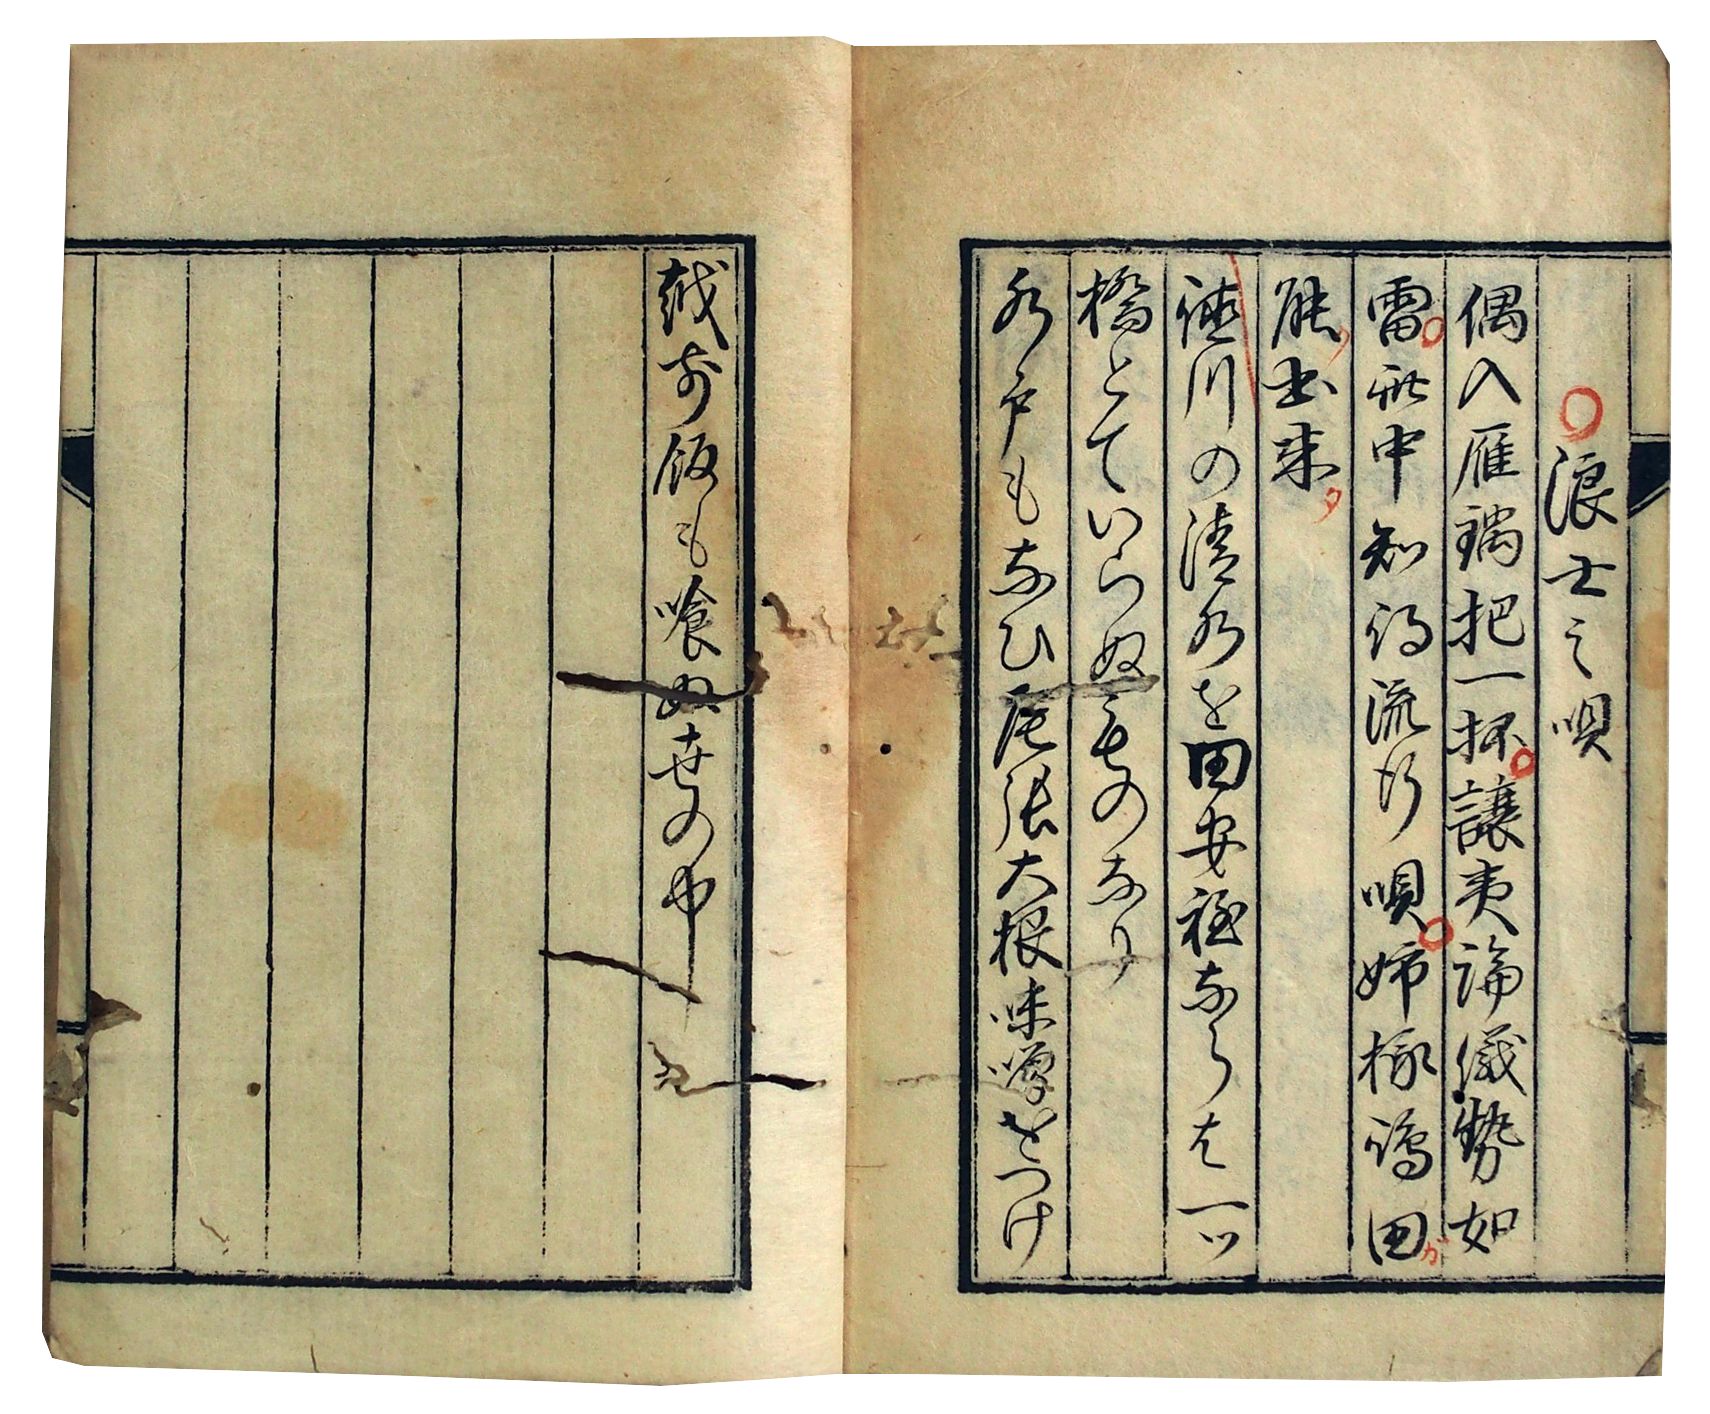 ○浪士之唄
偶入雁鍋把一杯譲夷論儀勢如
雷於中知得流行唄姉様鴻田ガ
能ク出来タ
徳川の清水を田安种ならは一ツ
橋とていらぬものなり
水戸もなひ尾張大根味噌をつけ
越前飯も喰ぬ世の中